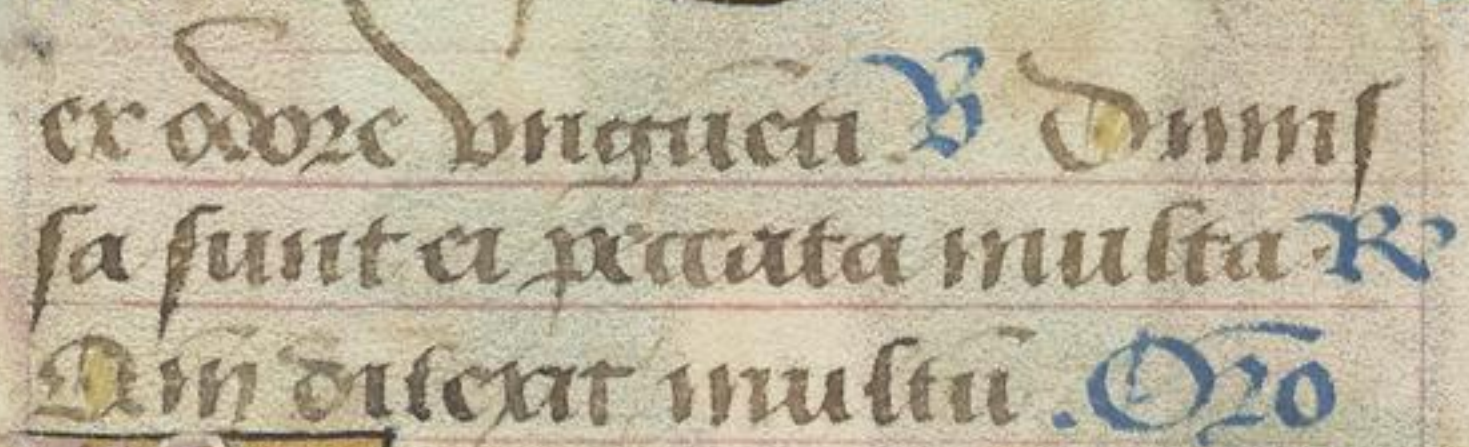 ex odore vnguētı V Dimis
sa sunt ei peccata multa R
Qm̄ dilexit multū . Or̄o